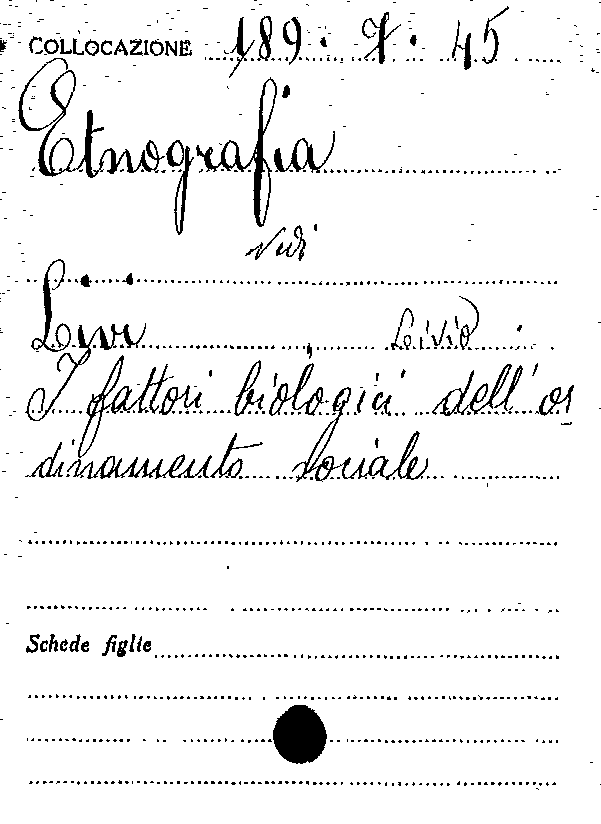 COLLOCAZIONE 189. 7. 45
Etnografia
Vedi
Livi, Livio.
I fattori biologici dell'or
dinamento sociale
Schede figlie